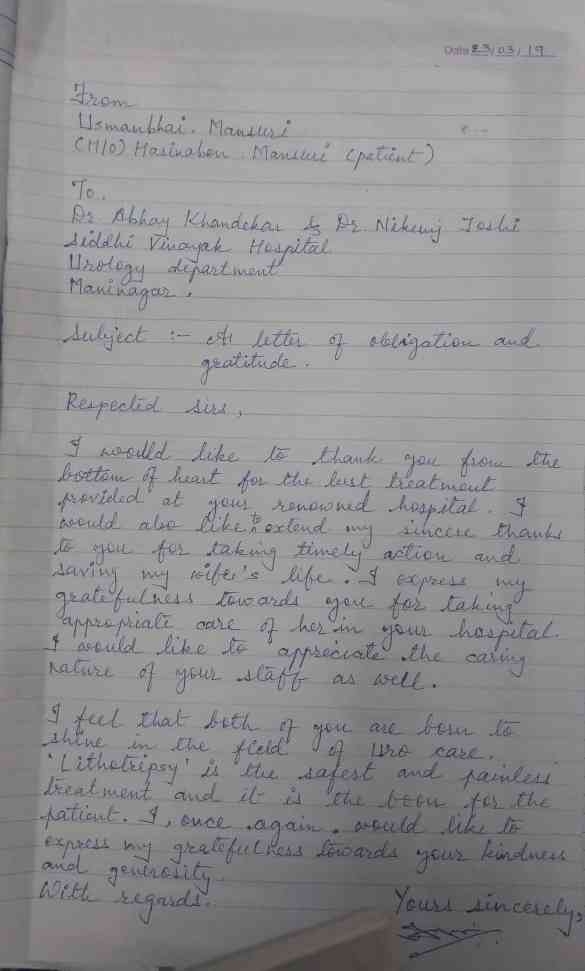 Date 23/03/19
From
Usmanbhai. Mansuri
(H/O) Hasinaben. Mansuri (patient)
To,
Dr Abhay Khandekar & Dr. Nikunj Joshi
Siddhi Vinayak Hospital
Urology department
Maninagar.
Subject :- A letter of obligation and
gratitude.
Respected Sirs,
I would like to thank you from the
bottom of heart for the best treatment
provided at your renowned hospital. I
would also like to extend my sincere thanks
to you for taking timely action and
saving my wife's life. I express my
gratefulness towards you for taking
appropriate care of her in your hospital.
I would like to appreciate the caring
nature of your staff as well.
I feel that both of you are born to
shine in the field of Uro care.
'Lithotripsy' is the safest and painless
treatment and it is the boon for the
patient. I, once again, would like to
express my gratefulness towards your kindness
and generosity.
With regards.
Yours sincerely,